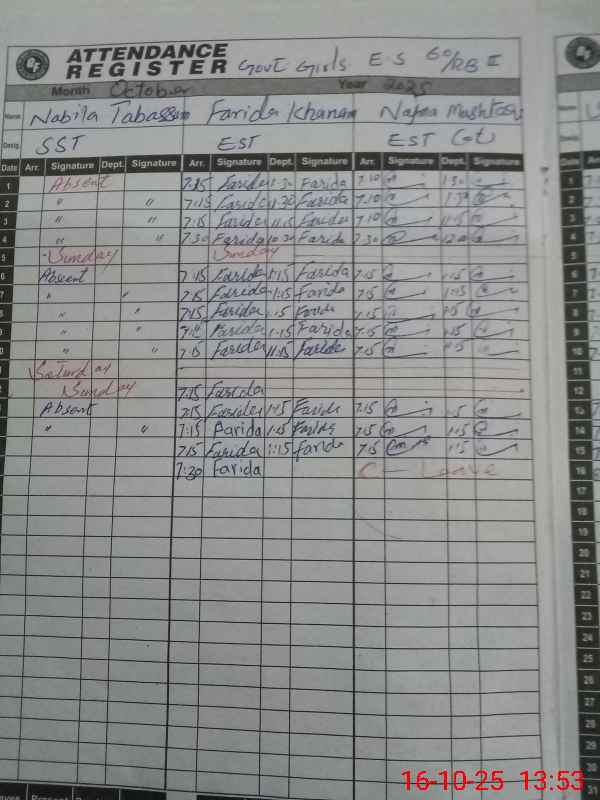 ATTENDANCE REGISTER Govt Girls E.S 60/RB II
Month October Year 2025
Name Nabila Tabassum Farida Khanam Najma Mushtaq
Desig. SST EST EST Gt
Date Arr. Signature Dept. Signature Arr. Signature Dept. Signature Arr. Signature Dept. Signature
1 Absent 7:15 Farida 1:30 Farida 7.10 1.30
2 " " 7:15 Farida 1:30 Farida 7.10
3 " " 7:15 Farida 11:15 Farida 7.10 11:15
4 " " 7:30 Farida 10:30 Farida 7.30
5 Sunday Sunday
6 Absent 7:15 Farida 1:15 Farida 7:15 1:15
7 " " 7:15 Farida 1:15 Farida 7:15 1:15
8 " " 7:15 Farida 1:15 Farida 7:15 1:15
9 " " Farida 1:15 Farida 7:15 1:15
10 " " 7:15 Farida 11:15 Farida 7:15
11 Saturday
12 Sunday 7:15 Farida
13 Absent 7:15 Farida 1:15 Farida 7:15 1:15
14 " " 7:15 Farida 1:15 Farida 7:15 1:15
15 7:15 Farida 1:15 Farida 7:15 1:15
16 7:30 Farida C — Leave
17
18
19
20
21
22
23
24
25
26
27
28
29
30
31
Present
16-10-25 13:53